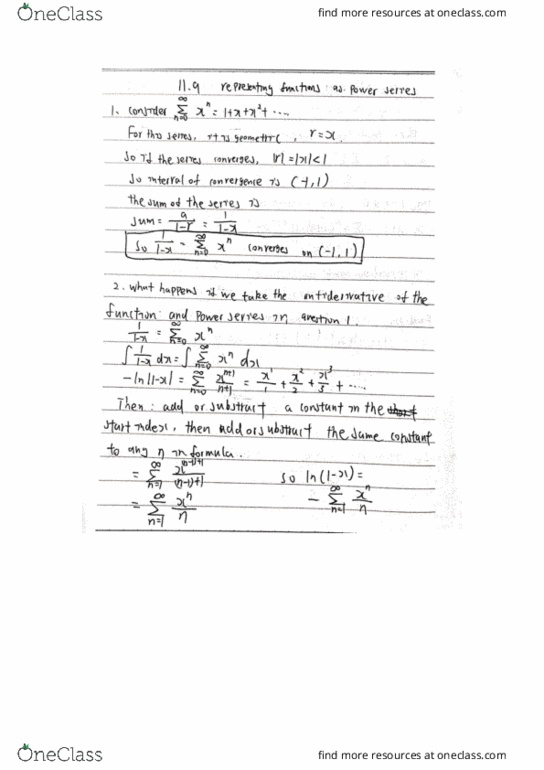 OneClass
find more resources at oneclass.com
11.9 representing functions as power series
1. consider ∑_{n=0}^{∞} x^n = 1+x+x^2+ ....
For this series, it is geometric, r=x.
So if the series converges, |r|=|x|<1
So interval of convergence is (-1,1)
the sum of the series is
sum = a/(1-r) = 1/(1-x)
So 1/(1-x) = ∑_{n=0}^{∞} x^n converges on (-1,1)
2. what happens if we take the antiderivative of the
function and power series in question 1.
1/(1-x) = ∑_{n=0}^{∞} x^n
∫ 1/(1-x) dx = ∫ ∑_{n=0}^{∞} x^n dx
-ln|1-x| = ∑_{n=0}^{∞} x^{n+1}/(n+1) = x^1/1 + x^2/2 + x^3/3 + ....
Then: add or substract a constant in the
start index, then add or substract the same constant
to any n in formula.
= ∑_{n=1}^{∞} x^{(n-1)+1}/((n-1)+1) so ln(1-x) =
= ∑_{n=1}^{∞} x^n/n - ∑_{n=1}^{∞} x^n/n
OneClass
find more resources at oneclass.com